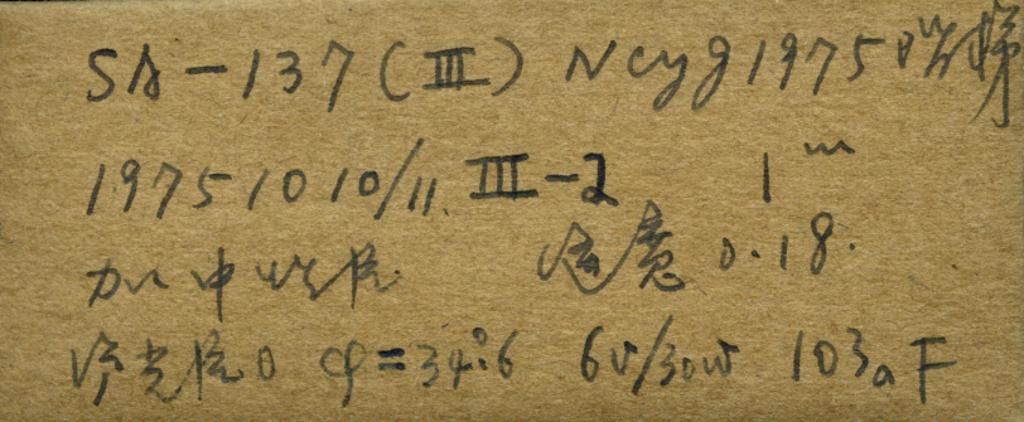 SA-137(III) N Cyg 1975 阶梯
1975 10 10/11. III-2 1ᵐ
加中 0.18.
光 0 φ=34°.6 6v/30w 103aF